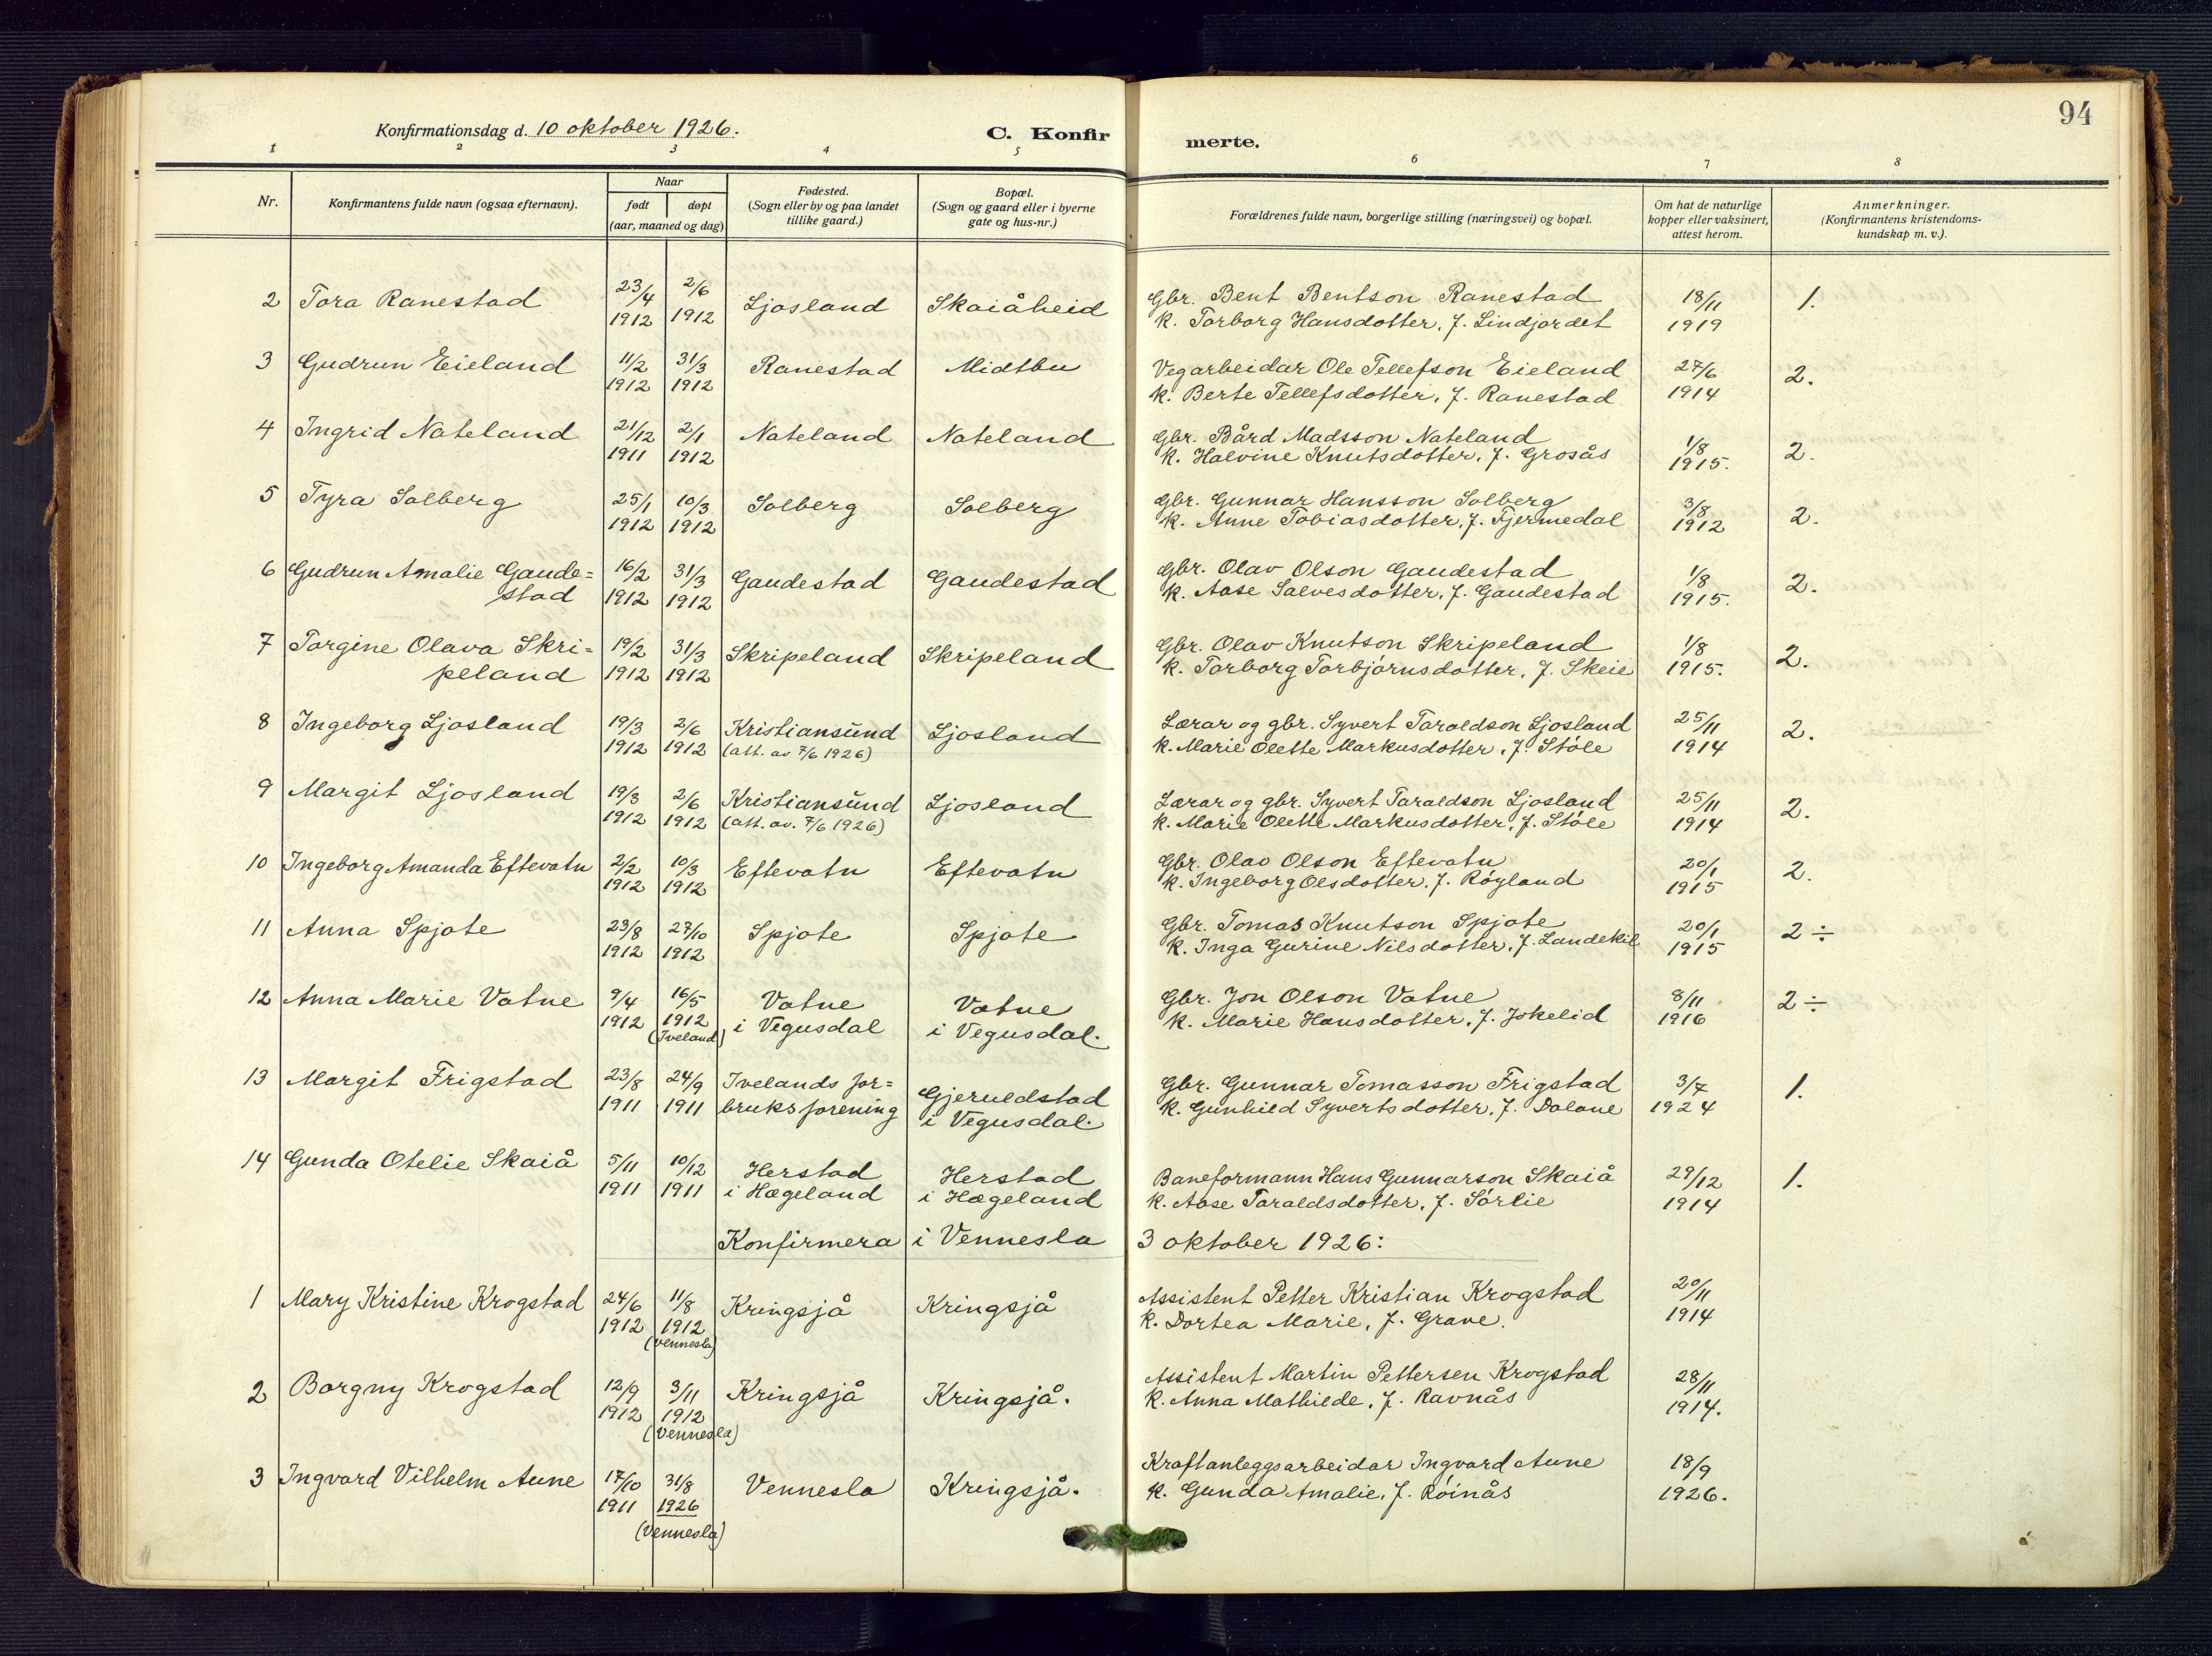 94
Konfirmationsdag d. 10 oktober 1926. C. Konfir merte.
1 2 3 4 5 6 7 8
Nr. Konfirmantens fulde navn (ogsaa efternavn). Naar født døpt (aar, maaned og dag) Fødested. (Sogn eller by og paa landet tillike gaard.) Bopæl. (Sogn og gaard eller i byerne gate og hus-nr.) Forældrenes fulde navn, borgerlige stilling (næringsvei) og bopæl. Om hat de naturlige kopper eller vaksinert, attest herom. Anmerkninger. (Konfirmantens kristendoms-kundskap m. v.).
2 Tora Ranestad 23/4 1912 2/6 1912 Ljosland Skaiåheid Gbr. Bent Bentson Ranestad 18/11 1.
k. Torborg Hansdotter, f. Lindjordet 1919
3 Gudrun Eieland 11/2 1912 31/3 1912 Ranestad Midtbu Vegarbeidar Ole Tellefson Eieland 27/6 2.
k. Berte Tellefsdotter, f. Ranestad 1914
4 Ingrid Nateland 21/12 1911 2/1 1912 Nateland Nateland Gbr. Bård Madsson Nateland 1/8 2.
k. Halvine Knutsdotter, f. Grosås 1915.
5 Tyra Solberg 25/1 1912 10/3 1912 Solberg Solberg Gbr. Gunnar Hansson Solberg 3/8 2.
k. Anne Tobiasdotter, f. Fjermedal 1912
6 Gudrun Amalie Gaude= 16/2 31/3 Gaudestad Gaudestad Gbr. Olav Olson Gaudestad 1/8 2.
stad 1912 1912 k. Aase Salvesdotter, f. Gaudestad 1915.
7 Torgine Olava Skri= 19/2 31/3 Skripeland Skripeland Gbr. Olav Knutson Skripeland 1/8 2.
peland 1912 1912 k. Torborg Torbjørnsdotter, f. Skeie 1915.
8 Ingeborg Ljosland 19/3 2/6 Kristiansund Ljosland Lærar og gbr. Syvert Taraldson Ljosland 25/11 2.
1912 1912 (att. av 7/6 1926) k. Marie Olette Markusdotter, f. Støle 1914
9 Margit Ljosland 19/3 2/6 Kristiansund Ljosland Lærar og gbr. Syvert Taraldson Ljosland 25/11 2.
1912 1912 (att. av. 7/6 1926) k. Marie Olette Markusdotter, f. Støle 1914
10 Ingeborg Amanda Eftevatn 2/2 10/3 Eftevatn Eftevatn Gbr. Olav Olson Eftevatn 20/1 2.
1912 1912 k. Ingeborg Olsdotter, f. Røyland 1915
11 Anna Spjote 23/8 27/10 Spjote Spjote Gbr. Tomas Knutson Spjote 20/1 2÷
1912 1912 k. Inga Gurine Nilsdotter, f. Landekil 1915
12 Anna Marie Vatne 9/4 16/5 Vatne Vatne Gbr. Jon Olson Vatne 8/11 2÷
1912 1912 (Iveland) i Vegusdal i Vegusdal. k. Marie Hansdotter, f. Jokelid 1916
13 Margit Frigstad 23/8 24/9 Ivelands for= Gjeruldstad Gbr. Gunnar Tomasson Frigstad 3/7 1.
1911 1911 bruksforening i Vegusdal. k. Gunhild Syvertsdotter, f. Dalane 1924
14 Gunda Otelie Skaiå 5/11 10/12 Herstad Herstad Baneformann Hans Gunnarson Skaiå 29/12 1.
1911 1911 i Hægeland i Hægeland k. Aase Taraldsdotter, f. Sørlie 1914
Konfirmera i Vennesla 3 oktober 1926:
1 Mary Kristine Krogstad 24/6 11/8 Kringsjå Kringsjå Assistent Petter Kristian Krogstad 20/11
1912 1912 (Vennesla) k. Dortea Marie, f. Grave. 1914
2 Borgny Krogstad 12/9 3/11 Kringsjå Kringsjå. Assistent Martin Pettersen Krogstad 28/11
1912 1912 (Vennesla) k. Anna Mathilde, f. Ravnås 1914.
3 Ingvard Vilhelm Aune 17/10 31/8 Vennesla Kringsjå. Kraftanleggsarbeidar Ingvard Aune 18/9
1911 1926 (Vennesla) k. Gunda Amalie, f. Røinås 1926.